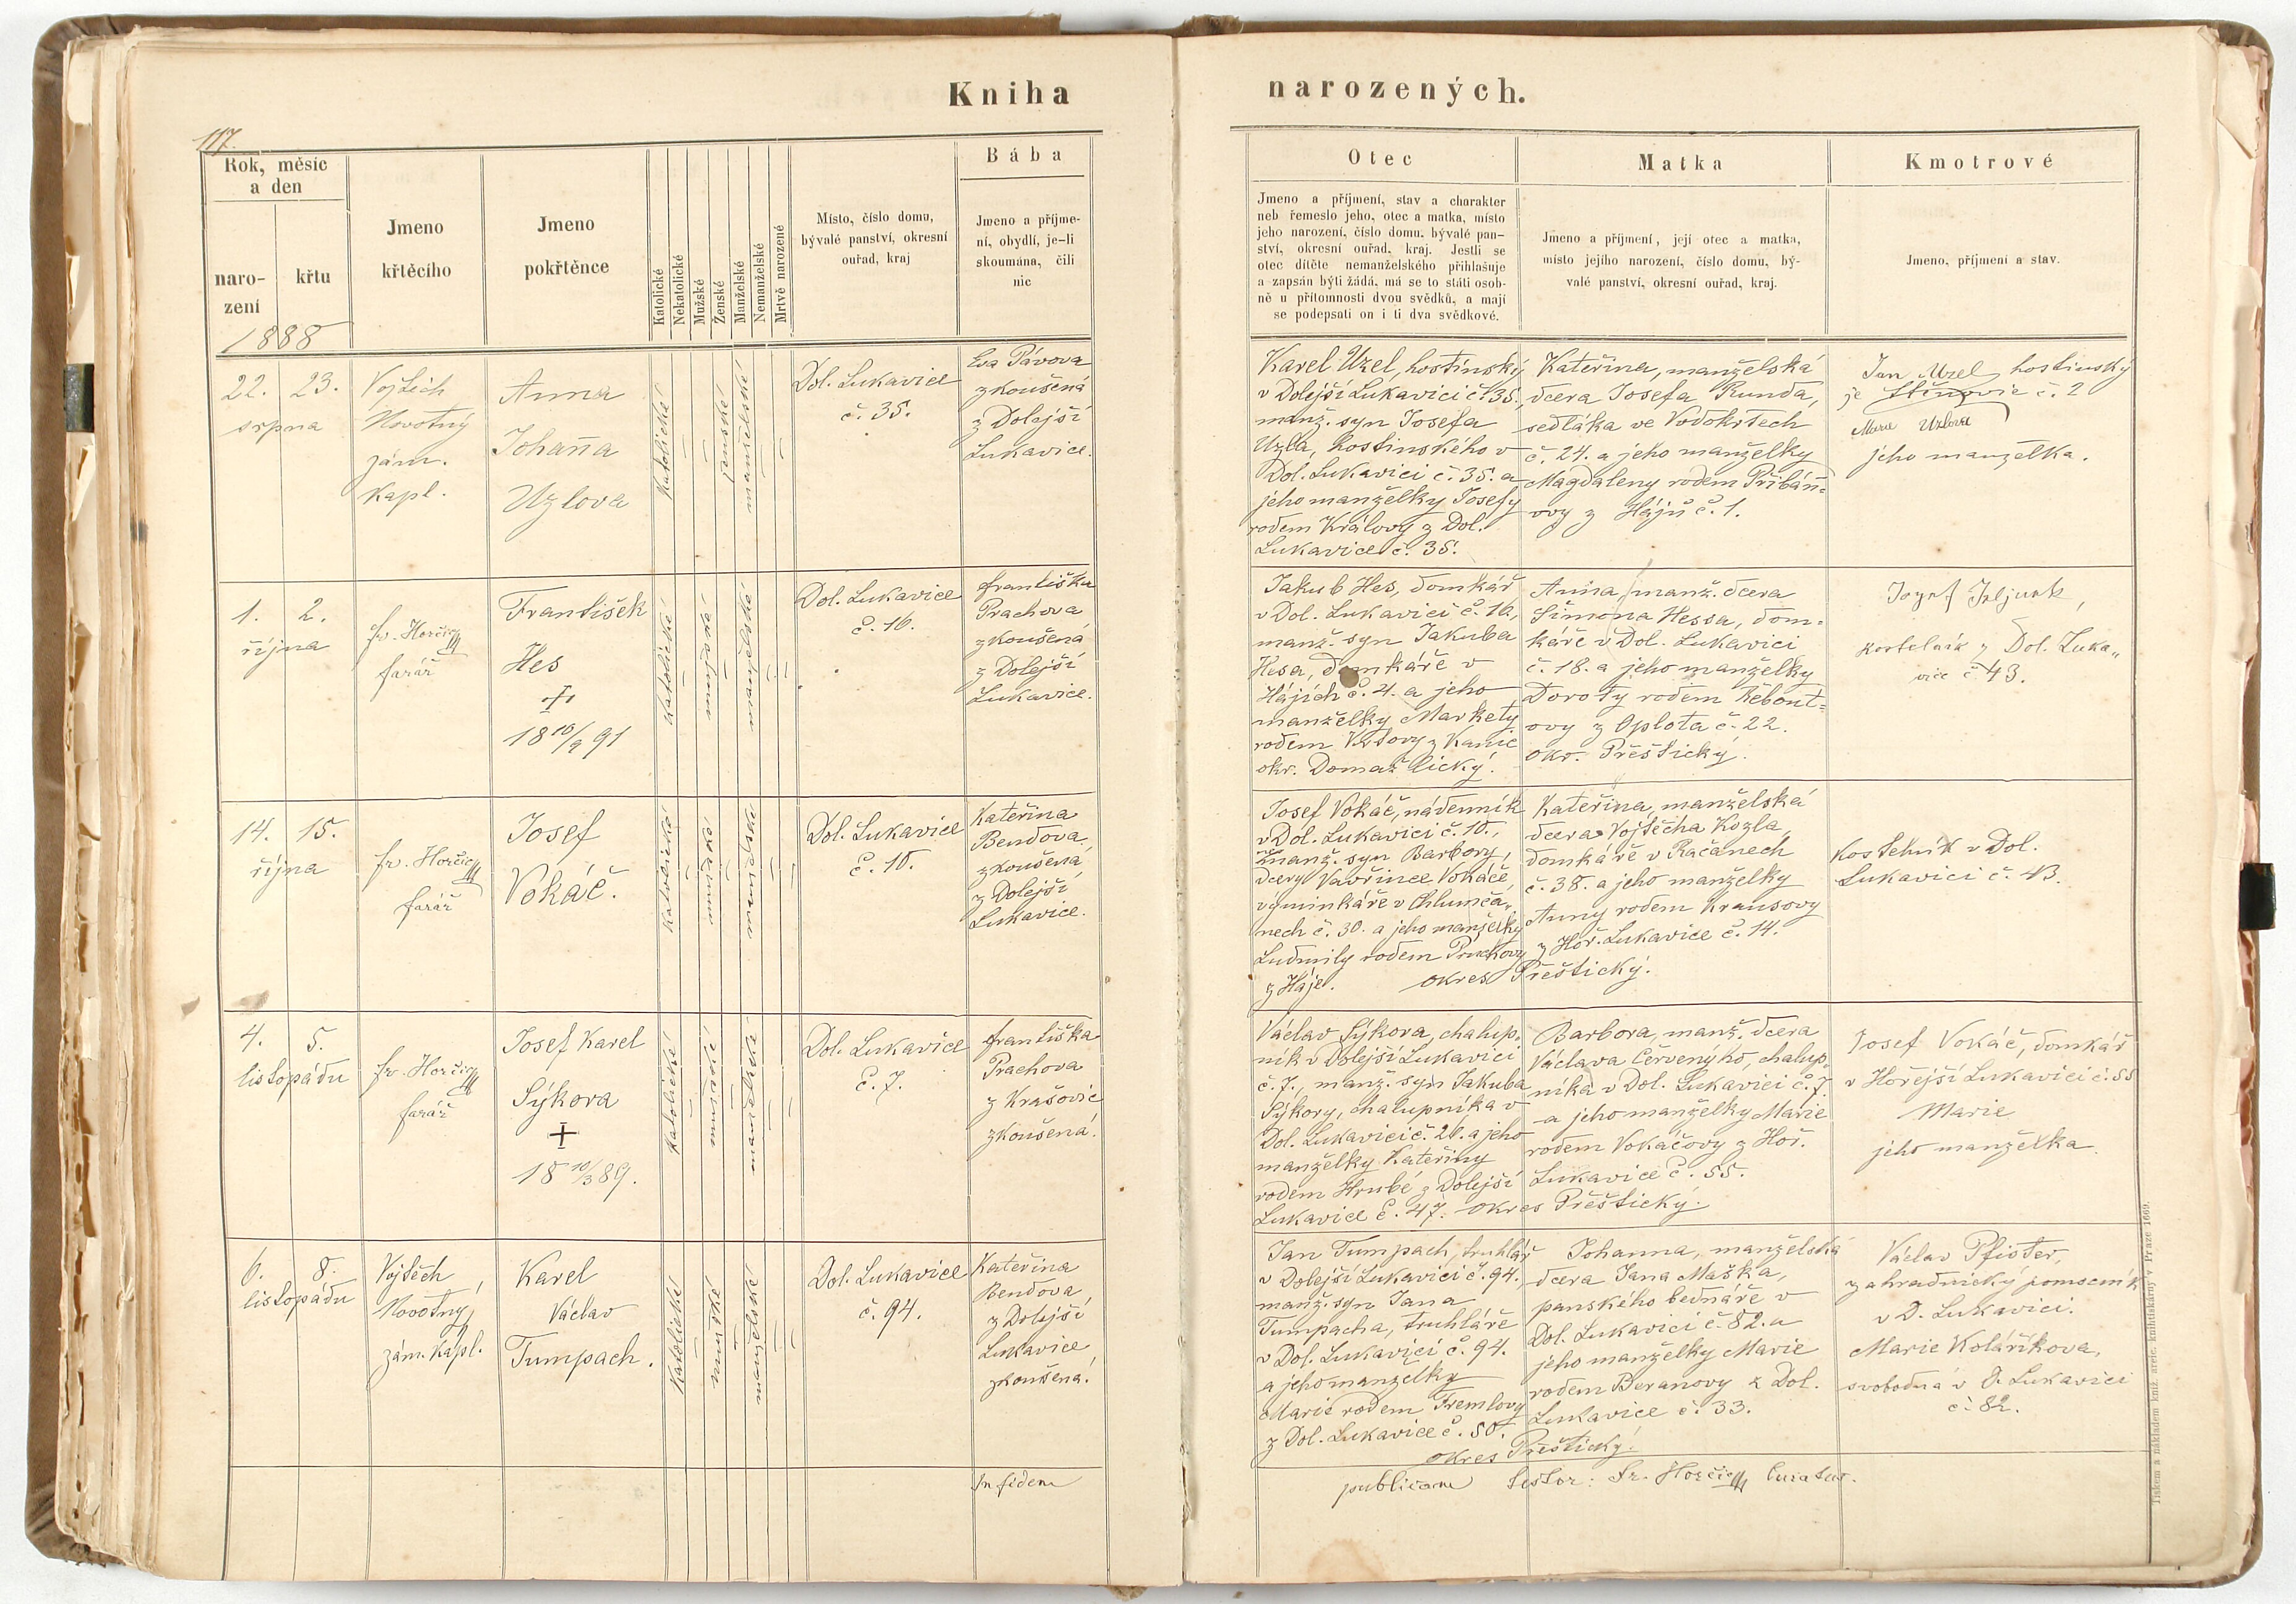 Kniha
narozených.
117.
Rok, měsíc
a den
naro-
zení
křtu
1888
Jmeno
křtěcího
Jmeno
pokřtěnce
Katolické
Nekatolické
Mužské
Ženské
Manželské
Nemanželské
Mrtvě narozené
Místo, číslo domu,
bývalé panství, okresní
ouřad, kraj
Bába
Jmeno a příjme-
ní, obydlí, je-li
skoumána, čili
nic
Otec
Jmeno a příjmení, stav a charakter
neb řemeslo jeho, otec a matka, místo
jeho narození, číslo domu, bývalé pan-
ství, okresní ouřad, kraj. Jestli se
otec dítěte nemanželského přihlašuje
a zapsán býti žádá, má se to státi osob-
ně u přítomnosti dvou svědků, a mají
se podepsati on i ti dva svědkové.
Matka
Jmeno a příjmení, její otec a matka,
místo jejího narození, číslo domu, bý-
valé panství, okresní ouřad, kraj.
Kmotrové
Jmeno, příjmení a stav.
22. 23.
srpna
Vojtěch
Novotný
zám.
kapl.
Anna
Johanna
Uzlova
katolické
ženské
manželské
Dol. Lukavice
č. 35.
Eva Pávova
zkoušená
z Dolejší
Lukavice.
Karel Uzel, hostinský
v Dolejší Lukavici č. 35.,
manž. syn Josefa
Uzla, hostinského v
Dol. Lukavici č. 35. a
jeho manželky Josefy
rodem Královy z Dol.
Lukavice č. 35.
Kateřina, manželská
dcera Josefa Runda,
sedláka ve Vodokrtech
č. 24. a jeho manželky
Magdaleny rodem Přibáň=
ovy z Hájů č. 1.
Jan Uzel hostinský
č. 2
Marie Uzlova
jeho manželka.
1. 2.
října
fr. Horčic
farář
František
Hes
+
18 10/9 91
katolické
mužské
manželské
Dol. Lukavice
č. 16.
Františka
Prachova
zkoušená
z Dolejší
Lukavice.
Jakub Hes, domkář
v Dol. Lukavici č. 16.,
manž. syn Jakuba
Hesa, domkáře v
Hájích č. 4. a jeho
manželky Markety
rodem z Kanic
okr. Domažlický.
Anna, manž. dcera
Šimona Hessa, dom=
káře v Dol. Lukavici
č. 18. a jeho manželky
Doroty rodem Řebout=
ovy z Oplota č. 22.
okr. Přeštický.
Jozef
kostelník z Dol. Luka„
vice č. 43.
14. 15.
října
fr. Horčic
farář
Josef
Vokáč.
katolické
mužské
manželské
Dol. Lukavice
č. 10.
Kateřina
Bendova,
zkoušená
z Dolejší
Lukavice.
Josef Vokáč, nádenník
v Dol. Lukavici č. 10.,
manž. syn Barbory,
dcery Vavřince Vokáče
výminkáře v Chlumča„
nech č. 30. a jeho manželky
Ludmily rodem
z Háje.
Kateřina, manželská
dcera Vojtěcha Kozla,
domkáře v Račanech
č. 38. a jeho manželky
Anny rodem Krausovy
z Hoř. Lukavice č. 14.
okres Přeštický.
Kostelník v Dol.
Lukavici č. 43.
4. 5.
listopádu
fr. Horčic
farář
Josef Karel
Sýkora
+
18 10/3 89.
katolické
mužské
manželské
Dol. Lukavice
č. 7.
Františka
Prachova
z Krašovic
zkoušená.
Václav Sýkora, chalup„
ník v Dolejší Lukavici
č. 7., manž. syn Jakuba
Sýkory, chalupníka v
Dol. Lukavici č. 26. a jeho
manželky Kateřiny
rodem Hrubé z Dolejší
Lukavice č. 47. okres Přeštický.
Barbora, manž. dcera
Václava Červeného, chalup„
níka v Dol. Lukavici č. 7.
a jeho manželky Marie
rodem Vokáčovy z Hoř.
Lukavice č. 55.
Josef Vokáč, domkář
v Hořejší Lukavici č. 55
Marie
jeho manželka.
6. 8.
listopádu
Vojtěch
Novotný,
zám. kapl.
Karel
Václav
Tumpach.
katolické
mužské
manželské
Dol. Lukavice
č. 94.
Kateřina
Bendova,
z Dolejší
Lukavice
zkoušená.
Jan Tumpach, truhlář
v Dolejší Lukavici č. 94.,
manž. syn Jana
Tumpacha, truhláře
v Dol. Lukavici č. 94.
a jeho manželky
Marie rodem Tremlovy
z Dol. Lukavice č. 50.
okres Přeštický.
Johanna, manželská
dcera Jana Maška,
panského bednáře v
Dol. Lukavici č. 82. a
jeho manželky Marie
rodem Beranovy z Dol.
Lukavice č. 33.
Václav Pfister,
zahradnický pomocník
v D. Lukavici.
Marie Kolaříkova,
svobodná v D. Lukavici
č. 82.
In fidem
publicam testor: Fr. Horčic Curatus.
Tiskem a nákladem kníž. arcib. knihtiskárny v Praze 1669.